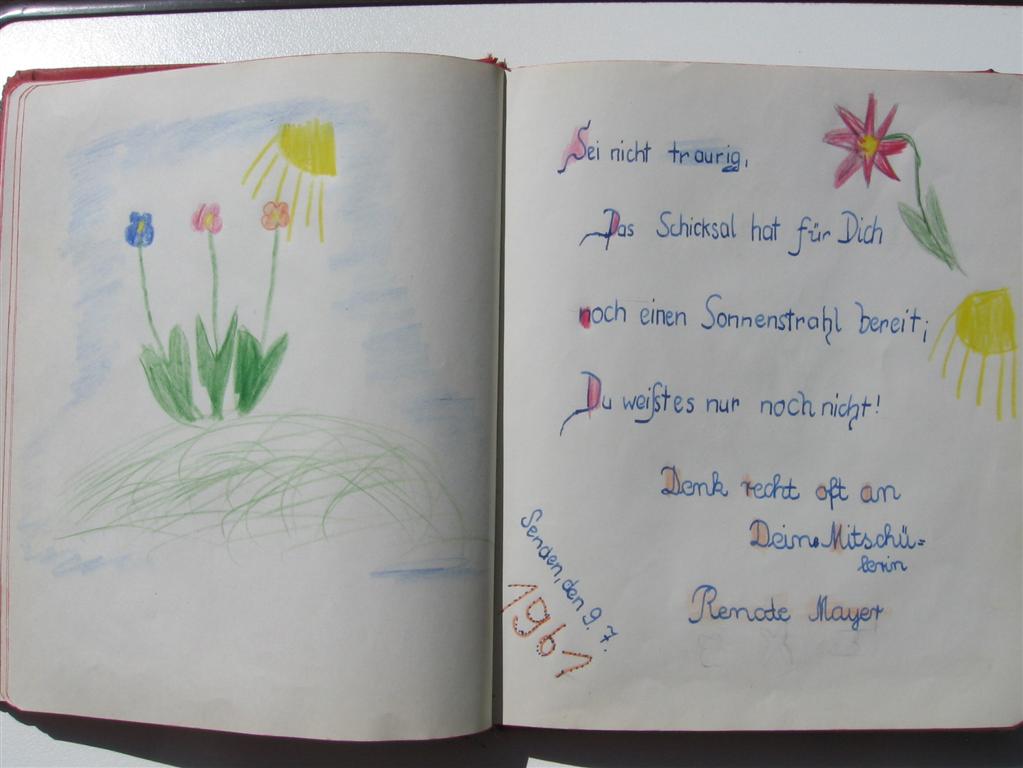 Sei nicht traurig,
Das Schicksal hat für Dich
noch einen Sonnenstrahl bereit;
Du weißtes nur noch nicht!
Denk recht oft an
Deine Mitschü=
lerin
Renate Mayer
Senden, den 9. 7.
1961